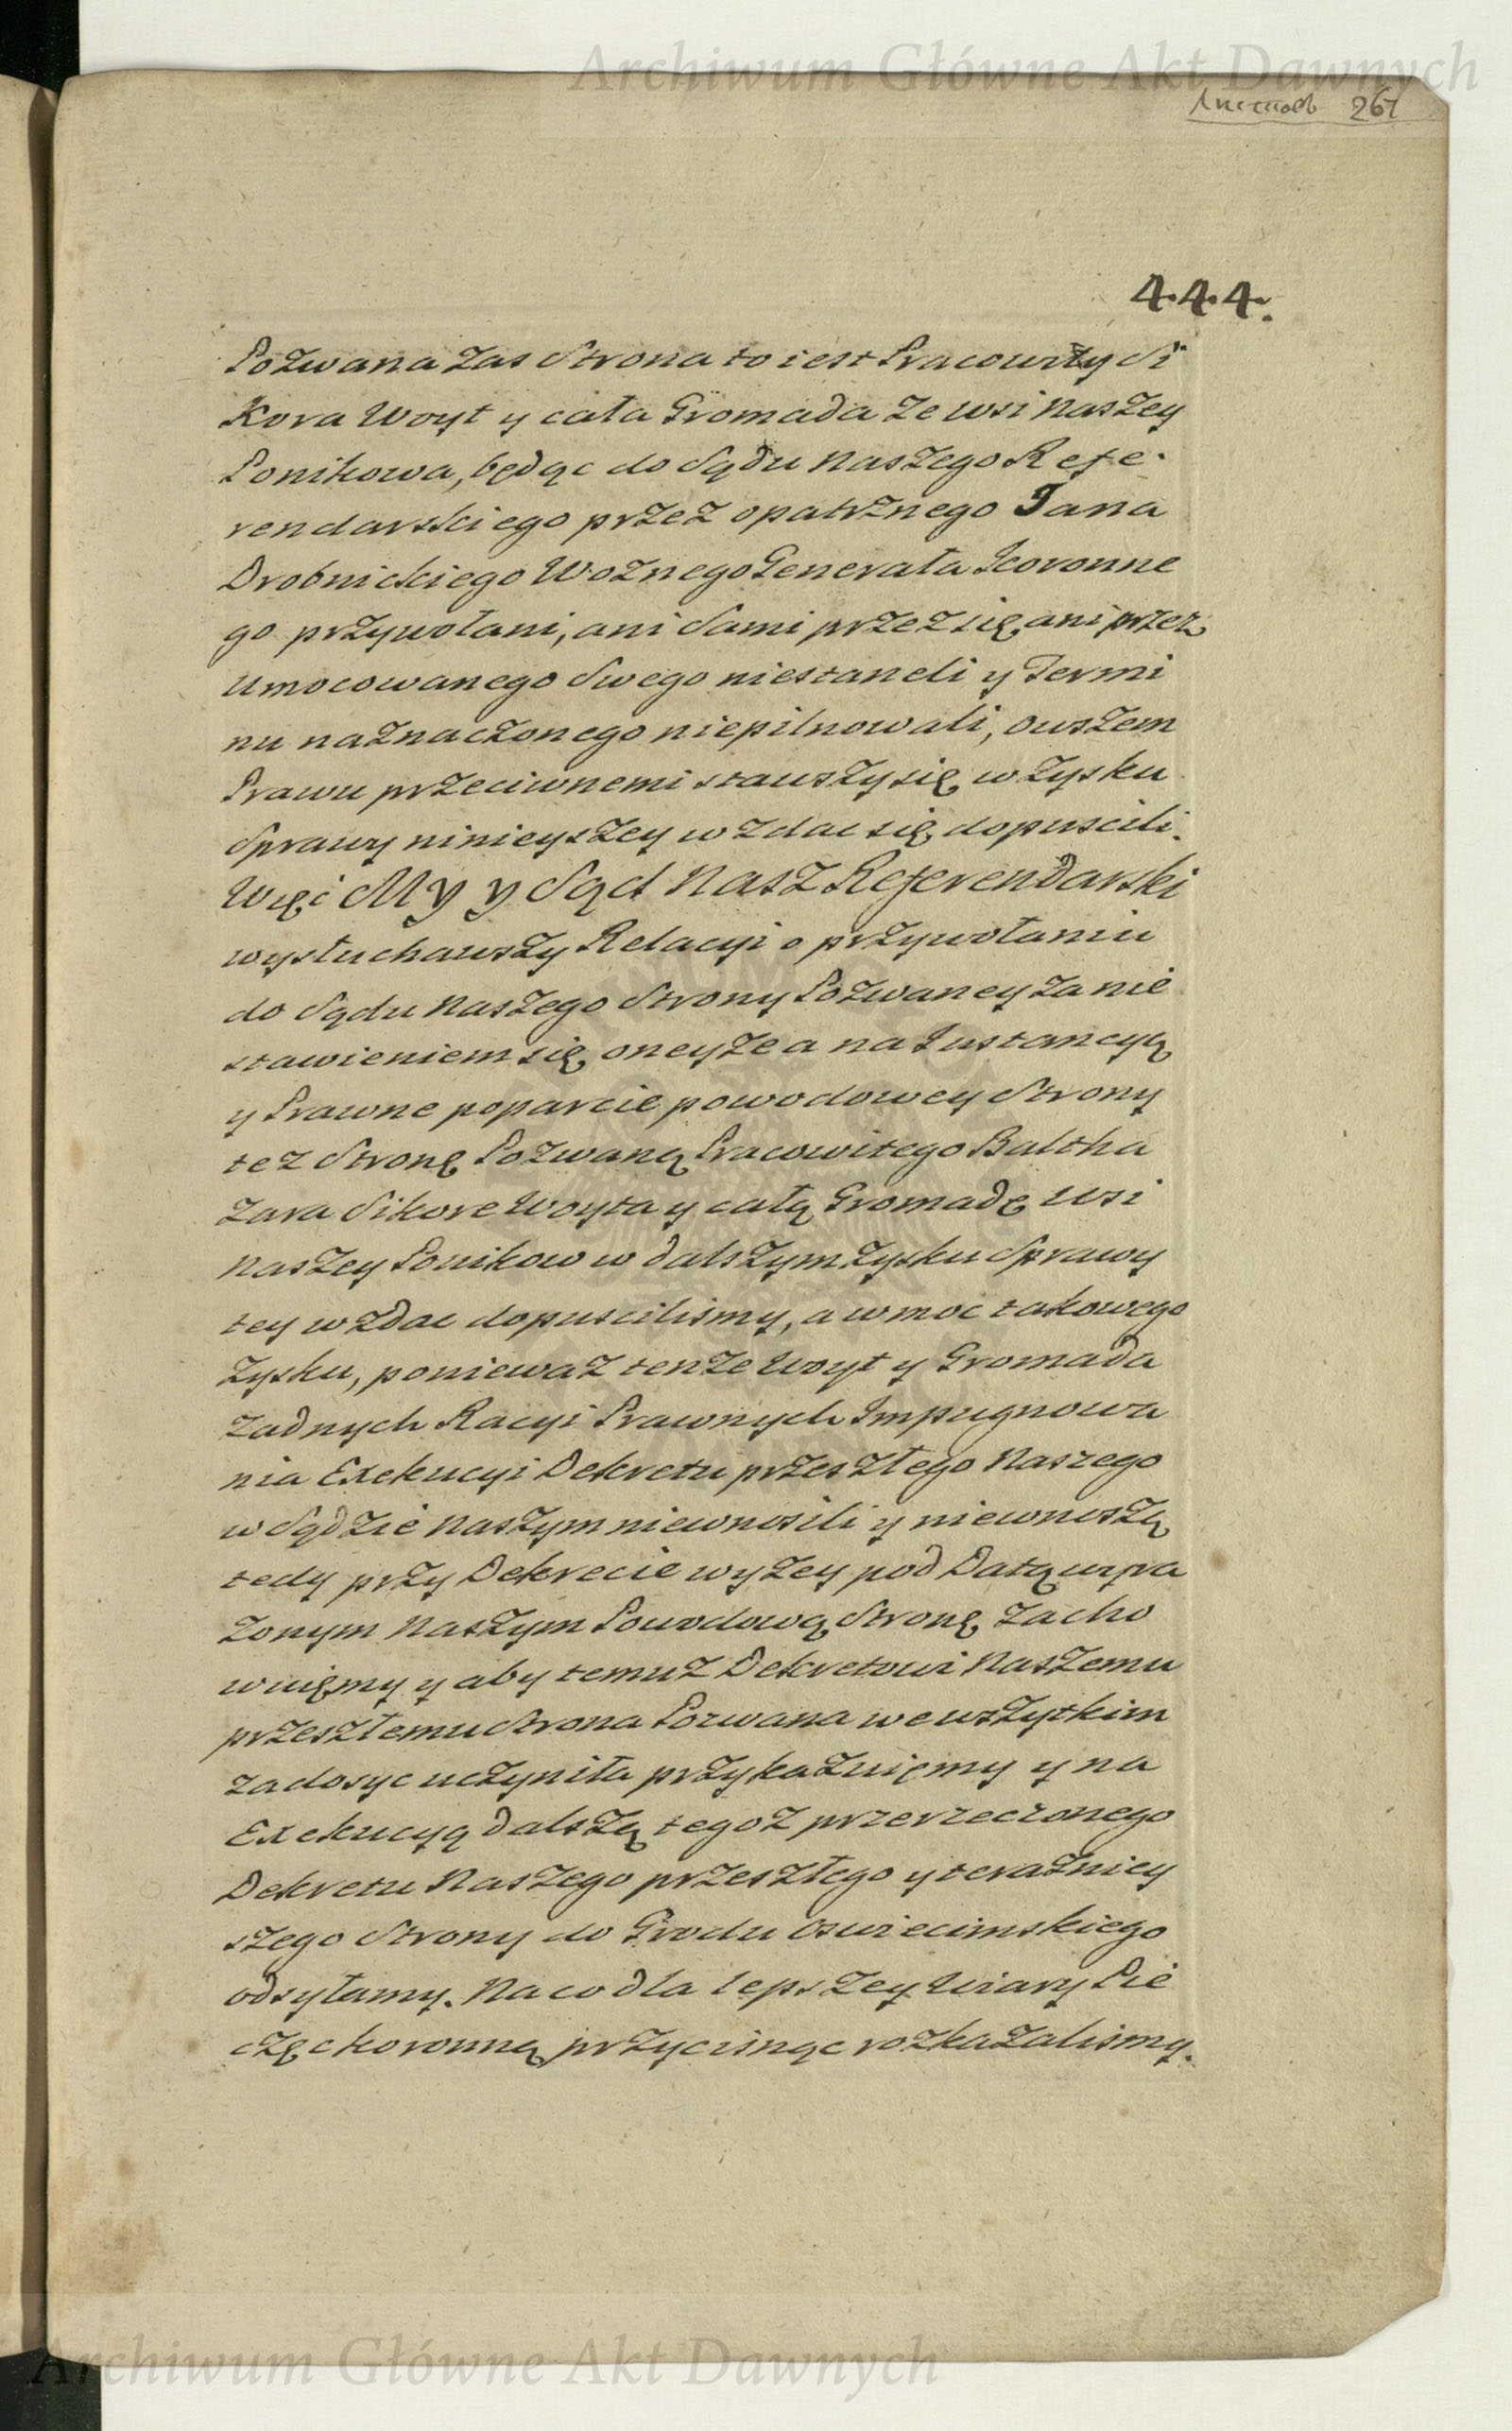 Archiwum Główne Akt Dawnych
Листовъ 261
444.
Pozwana zas Strona to iest Pracowity Si
kora Woyt y cała Gromada ze wsi Naszey
Ponikowa, będąc do Sądu Naszego Refe-
rendarskiego przez opatrznego Jana
Drobnickiego Woznego Generała Koronne
go przywołani, ani Sami przez się, ani przez
Umocowanego Swego niestaneli y Termi
nu naznaczonego niepilnowali, owszem
Prawu przeciwnemi stawszy się w Zysku
Sprawy ninieyszey w zdac się dopuscili.
Więc My y Sąd Nasz Referendarski
wysłuchawszy Relacyi o przywołaniu
do Sądu Naszego Strony Pozwaney za nie
stawieniem się oneyze a na Instancyą
y Prawne poparcie powodowey Strony
tez Stronę Pozwaną Pracowitego Baltha
zara Sikore Woyta y całą Gromadę wsi
Naszey Ponikow w dalszym zysku Sprawy
tey w zdac dopuscilismy, a w moc takowego
Zysku, poniewaz tenze Woyt y Gromada
Zadnych Racyi Prawnych Impugnowa
nia Exekucyi Dekretu przeszłego Naszego
w Sądzie Naszym niewnosili y niewnoszą
tedy przy Dekrecie wyzey pod Datą wyra
zonym Naszym Powodową Stronę zacho
wuięmy y aby temuz Dekretowi Naszemu
przeszłemu Strona Pozwana we wszytkim
zadosyc uczyniła przykazuięmy y na
Exekucyą dalszą tegoz przerzeczonego
Dekretu Naszego przeszłego y terazniey
szego Strony do Grodu Oswiecimskiego
odsyłamy. Na co dla lepszey Wiary Pie
częc koronną przycisnąc rozkazalismy.
Archiwum Główne Akt Dawnych